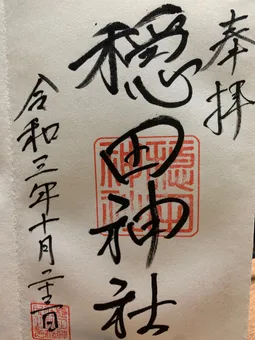 奉拝
穏田神社
穏田
神社
令和三年十月二十三日